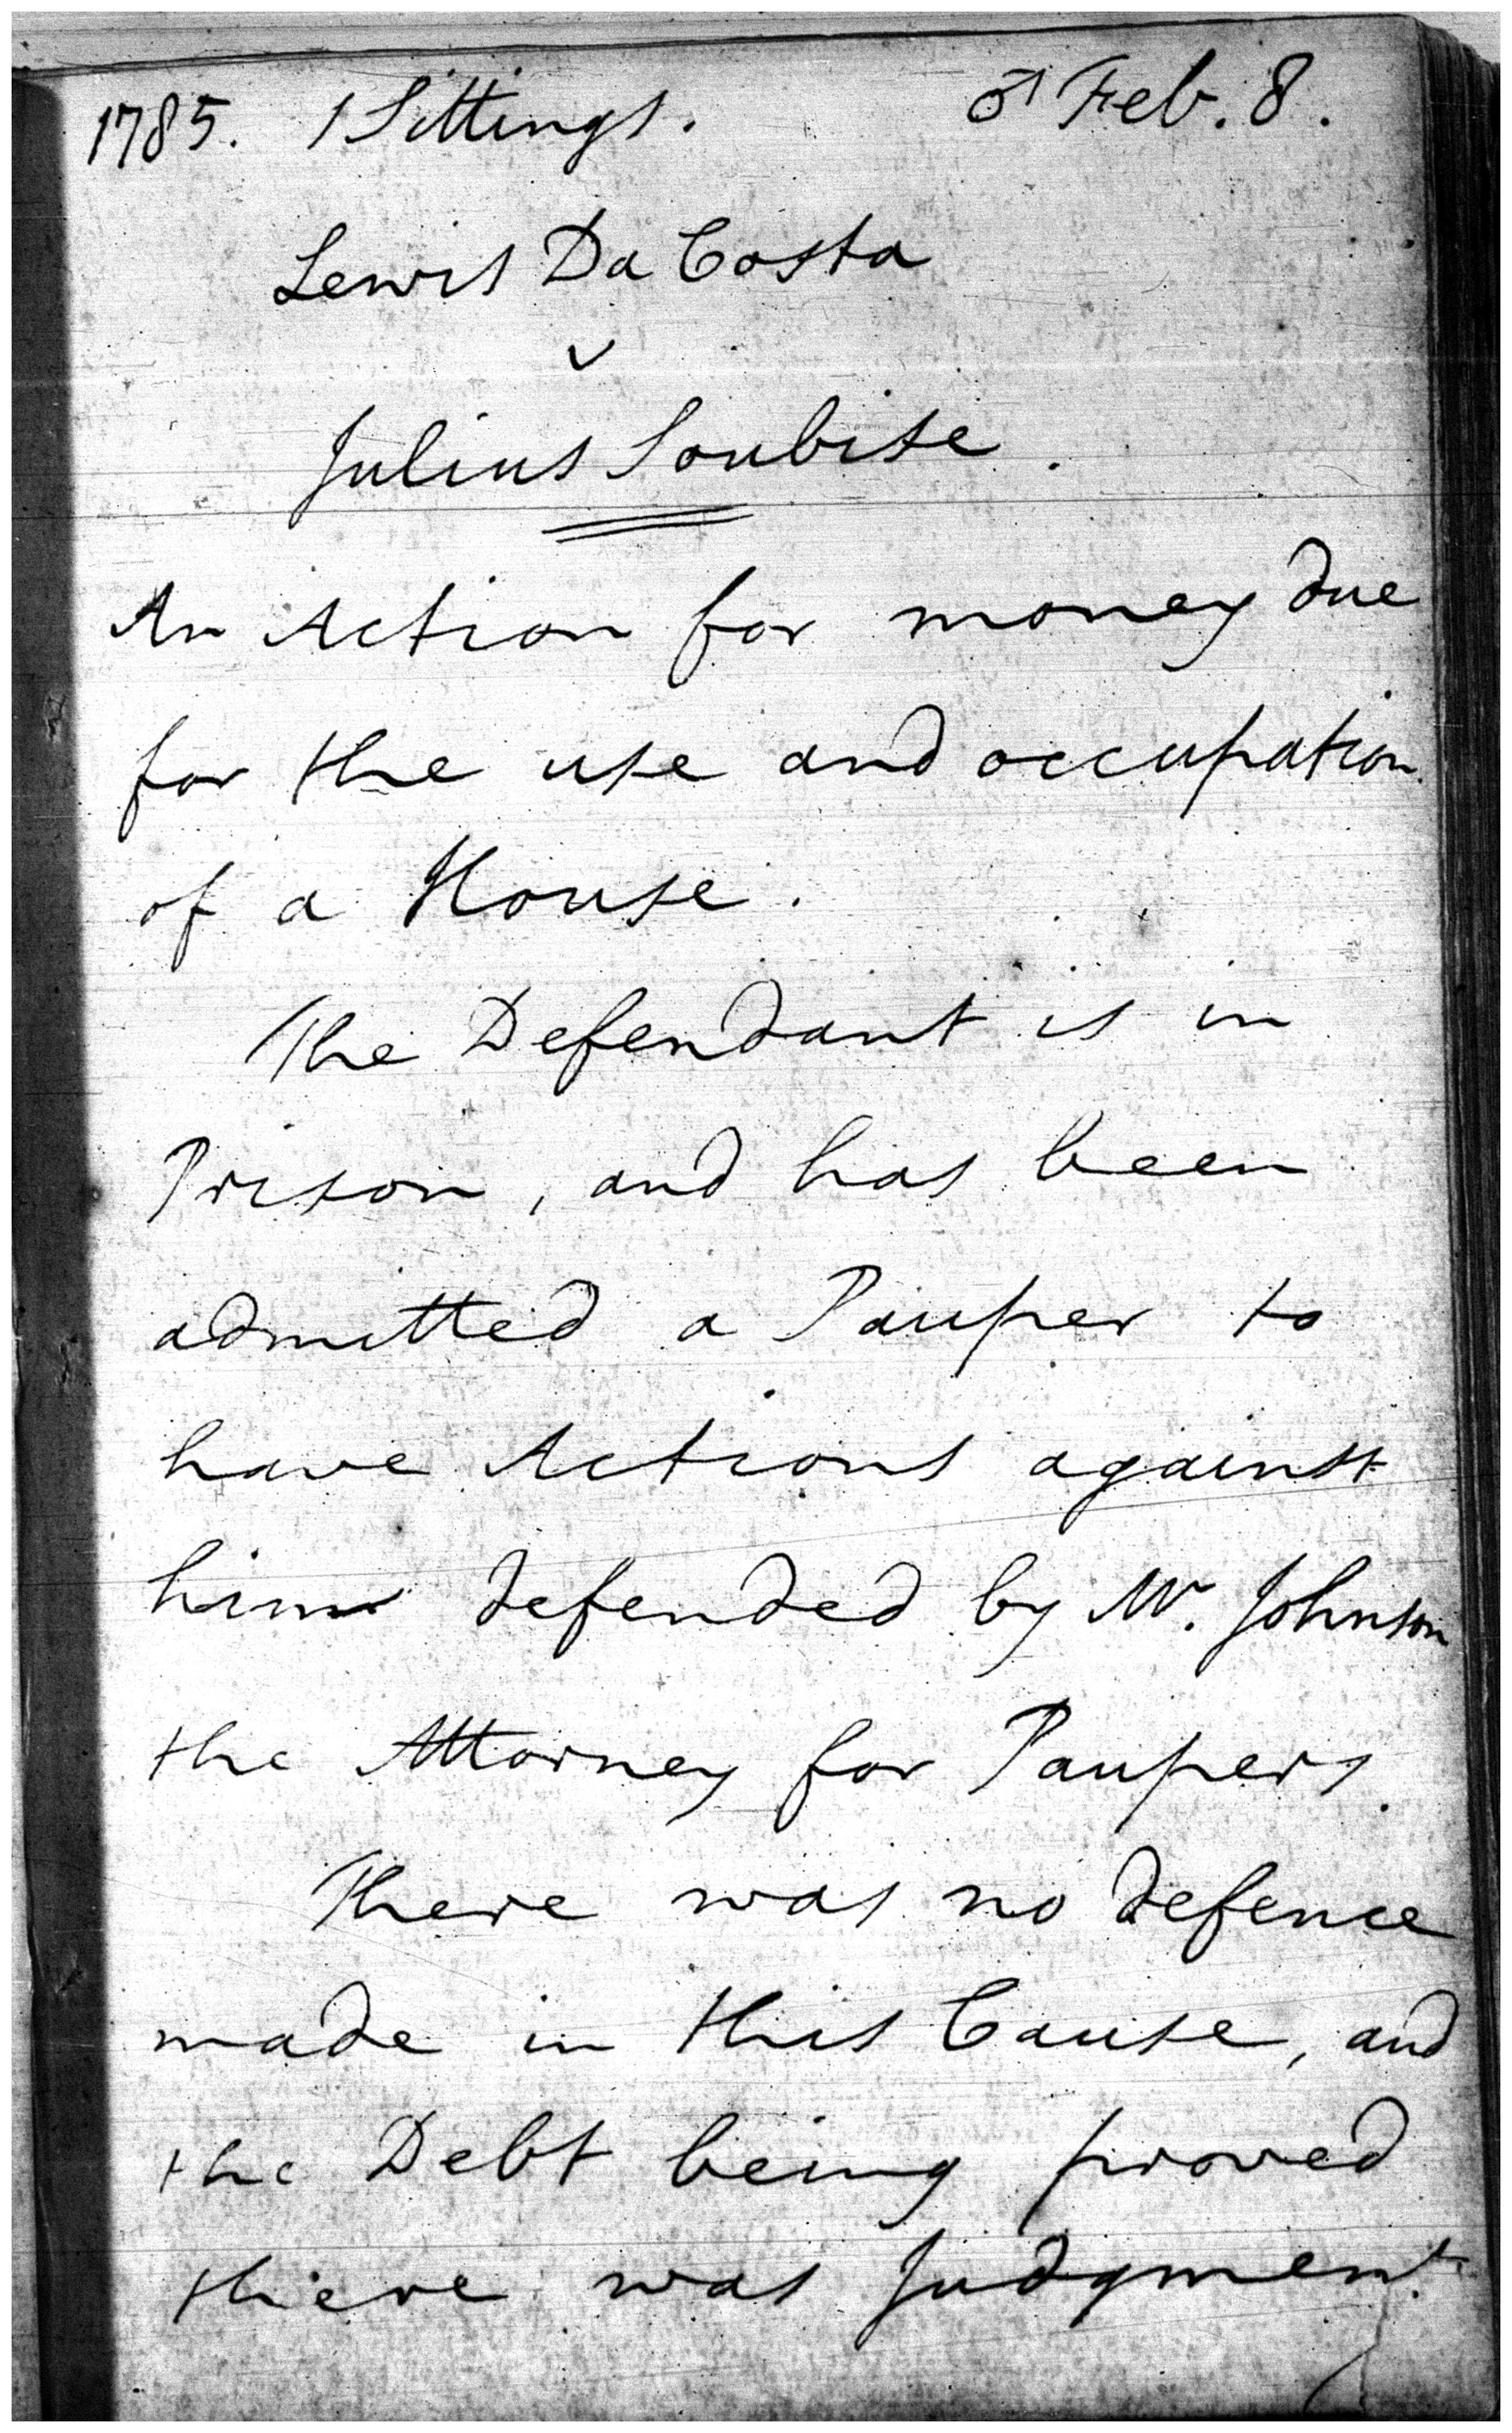 1785. 1 Sittings. ♂ Feb. 8.
Lewis Da Costa
v
Julius Soubise.
An Action for money due
for the use and occupation
of a House.
The Defendant is in
Prison, and has been
admitted a Pauper to
have Actions against
him defended by Mr. Johnson
the Attorney for Paupers.
There was no defence
made in this Cause, and
the Debt being proved
there was Judgment.